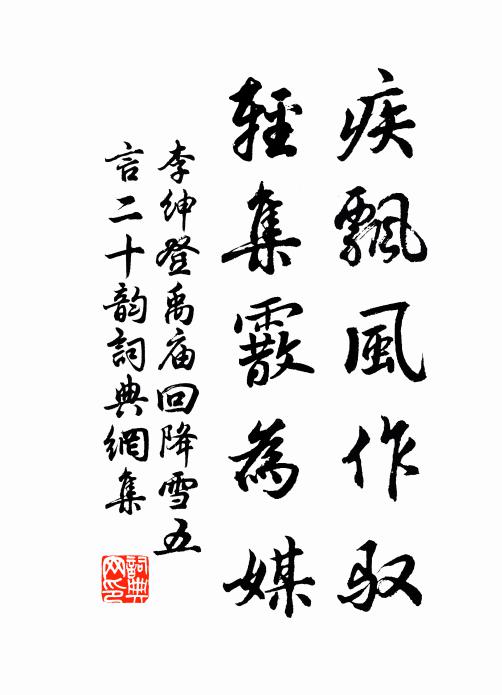 疾飄風作馭
輕集霰為媒
李紳登禹庙回降雪五
言二十韵詞典網集
詞典网印